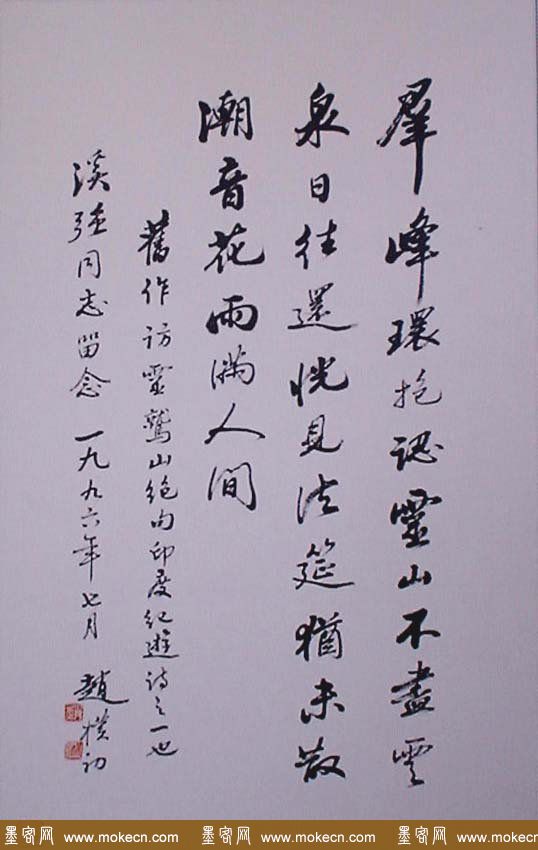 羣峰環抱認靈山不盡雲
泉日往還恍見法筵猶未散
潮音花雨滿人間
舊作訪靈鷲山絶句印度紀遊詩之一也
溪強同志留念 一九九六年七月 趙樸初
墨客网 www.mokecn.com 墨客网 www.mokecn.com 墨客网 www.mokecn.com